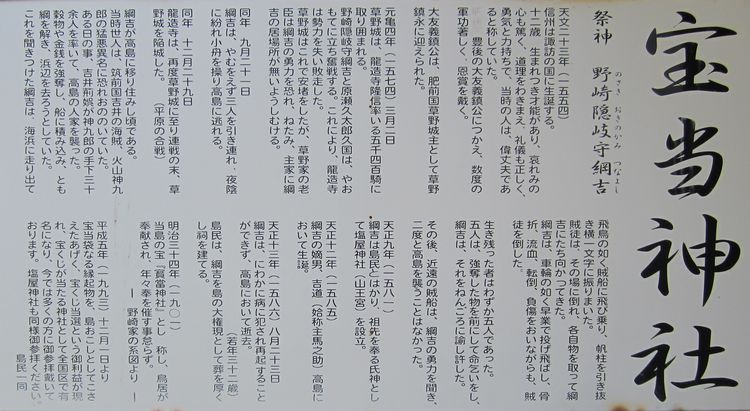 宝当神社
祭神 野崎隠岐守綱吉
のざき おきのかみ つなよし
天文二十三年(一五五四)
信州は諏訪の国に生誕する。
十二歳、生まれつき才能があり、哀れみの
心も篤く、道理をわきまえ、礼儀も正しく、
勇気と力持ちで、当時の人は、偉丈夫であ
ると称していた。
豊後の大友義鎮公につかえ、数度の
軍功著しく、恩賞を戴く。
大友義鎮公は、肥前国草野城主として草野
鎮永に迎えられた。
元亀四年(一五七四)三月二日
草野城は、龍造寺隆信率いる五千四百騎に
取り囲まれる。
野崎隠岐守綱吉と原瀬久太郎久国は、やお
もてに立ち奮戦する。これにより、龍造寺
は勢力を失い敗走した。
草野城はこれで安堵をしたが、草野家の老
臣は綱吉の勇力を恐れ、ねたみ、主家に綱
吉の居場所が無いようしむける。
同年 九月二十一日
綱吉は、やむをえず三人を引き連れ、夜陰
に紛れ小舟を操り高島に逃れる。
同年 十二月二十九日
龍造寺は、再度草野城に至り連戦の末、草
野城を陥城した。 (平原の合戦)
綱吉が高島に移り住みし頃である。
当時世人は、筑前国吉井の海賊、火山神九
郎の猛悪異名に恐れおののいていた。
ある日の事、吉井荊娯が神九郎の手下三十
余人を率いて、高島の人家を襲った。
穀物や金銭を強奪し、船に積み込み、とも
綱を解き、浜辺を去ろうとしていた。
これを聞きつけた綱吉は、海浜に走り出て
飛鳥の如く賊船に飛び乗り、帆柱を引き抜
き横一文字に振りまいた。
賊徒は、その場に倒れ、各自物を取って綱
吉にたち向かってきた。
綱吉は、車輪の如く早業で投げ飛ばし、骨
折、流血、転倒、負傷をおいながらも、賊
徒を倒した。
生き残った者はわずか五人であった。
五人は、強奪した物を前にして命乞いをし、
綱吉は、それをねんごろに諭し許した。
その後、近遠の賊船は、綱吉の勇力を聞き、
二度と高島を襲うことはなかった。
天正九年(一五八一)
綱吉は島民とはかり、祖先を奉る氏神とし
て塩屋神社(山王宮)を設立。
天正十二年(一五八五)
綱吉の嫡男、吉道(始称主馬之助)高島に
おいて生誕。
天正十三年(一五八六)八月二十三日
綱吉は、にわかに病に犯され再起すること
ができず、高島において逝去。
(若年三十二歳)
島民は、綱吉を島の大権現として葬を厚く
し祠を建てる。
明治三十四年(一九〇一)
当島の宝『寳當神社』とし 称し、鳥居が
奉献され、年々奉を催す事怠らず。
ー 野崎家の系図より ー
平成五年(一九九三)十二月一日より
宝当袋なる縁起物を、島おこしとしてこさ
えたあげく、宝くじ当選という御利益が現
れ、宝くじが当たる神社として全国区で有
名になり、今では多くの方に御参拝戴いて
おります。塩屋神社も同様御参拝ください。
島民一同